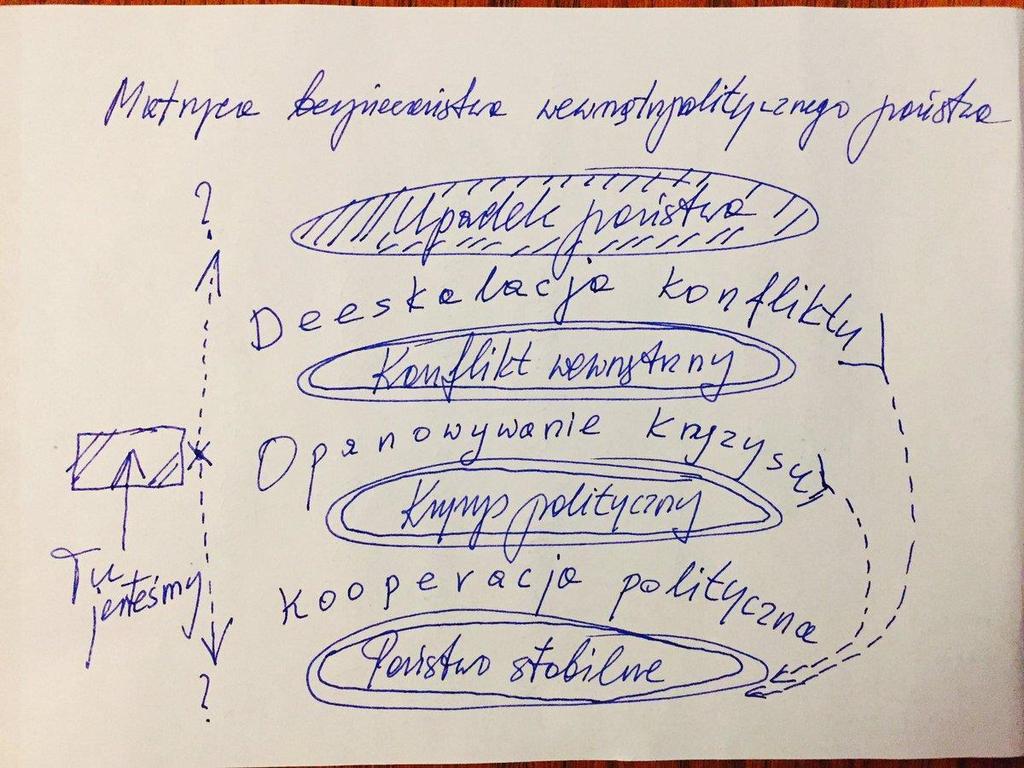 Matryca bezpieczeństwa wewnątrzpolitycznego państwa
?
Upadek państwa
Deeskalacja konfliktu
Konflikt wewnętrzny
Opanowywanie kryzysu
Kryzys polityczny
Tu
jesteśmy
Kooperacja polityczna
Państwo stabilne
?